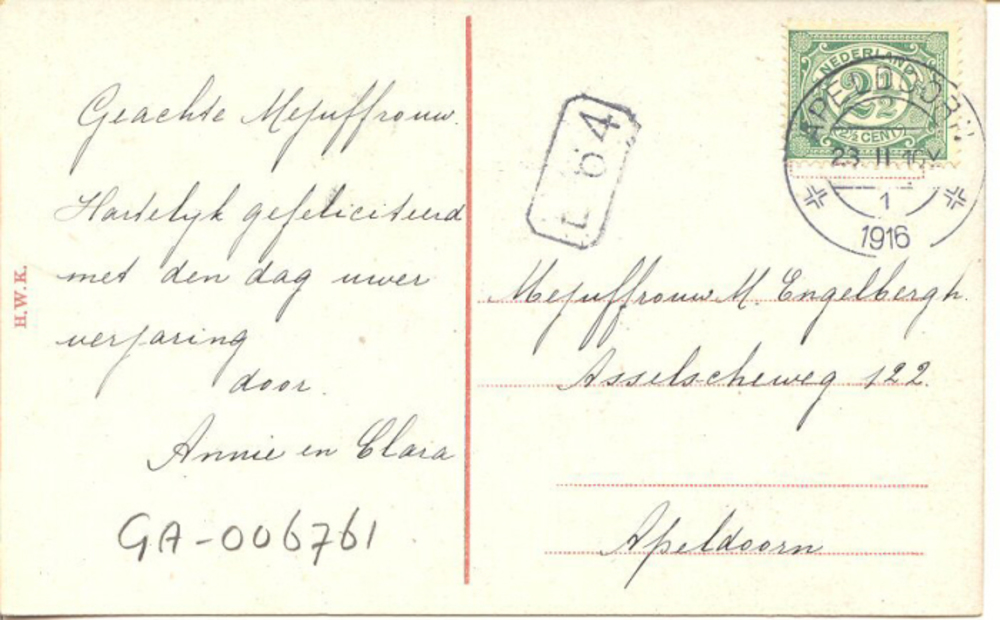 Geachte Mejuffrouw.
Hartelijk gefeliciteerd
met den dag uwer
verjaring
door.
Annie en Clara
GA-006761
H.W.K.
64
NEDERLAND
2½
2½ CENT
APELDOORN
23 II
1
1916
Mejuffrouw M. Engelbergh.
Asselscheweg 122.
Apeldoorn